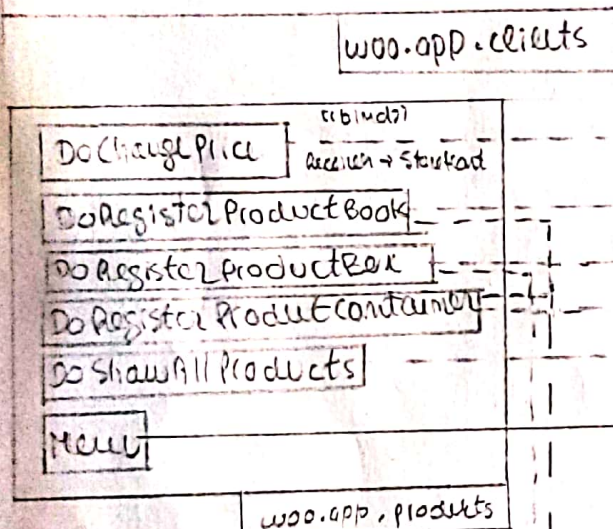 woo.app.clients
<<bind>>
DoChangePrice
Receiver → Storefront
DoRegisterProductBook
DoRegisterProductBox
DoRegisterProductContainer
DoShowAllProducts
Menu
woo.app.products